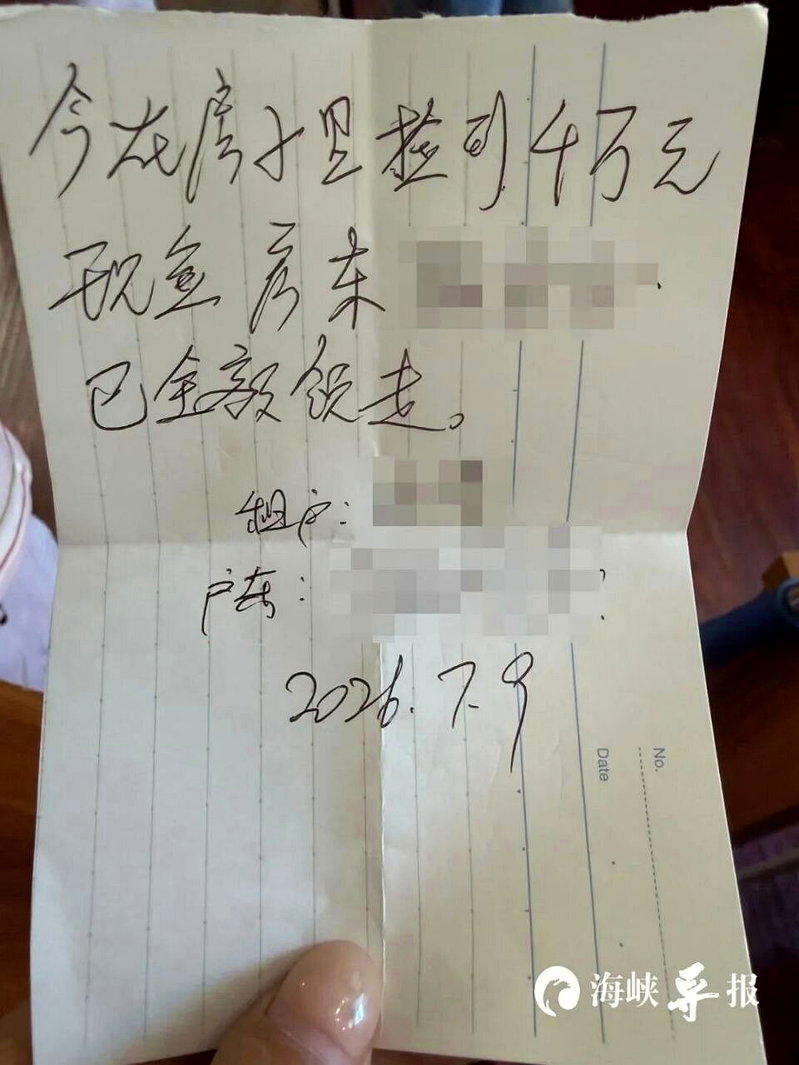 今在房子里捡到4万元
现金房东
已全额领走。
租户:
户东:
2026.7.9
No.
Date
海峡导报